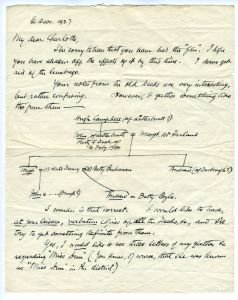 6 Decr. 1927
My dear Charlotte,
I'm sorry to hear that you have had the "flu". I hope
you have shaken off the effects of it by this time. I have got
rid of the lumbago.
Your notes from the old Deeds are very interesting,
but rather confusing. However, I gather something like
this from them —
Hugh Campbell (of Letternutt?)
John, of
= Margt. McFarland
Hugh = (1) Kate Denny (2) Betty Buchanan
Andrew
John
Andrew = Betty Coyle.
I wonder is that correct. I would like to have,
at your leisure, verbatim copies of all the Deeds, &c., and I'll
try to get something definite from them.
Yes, I would like to see those letters of my father re
regarding "Miss Ann" (You know, of course, that she was known
as "Miss Ann" in the district)